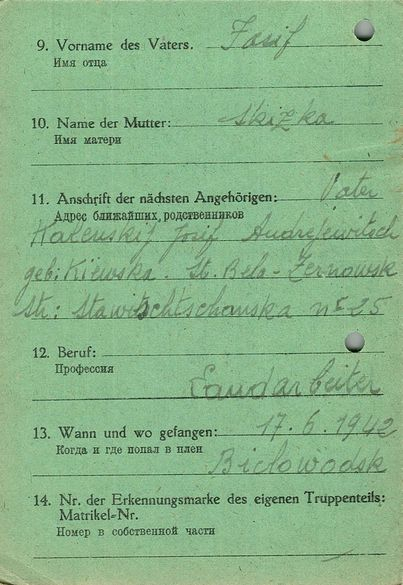 9. Vorname des Vaters. Josif
Имя отца
10. Name der Mutter: Skizka
Имя матери
11. Anschrift der nächsten Angehörigen: Vater
Адрес ближайших родственников
Kalenskij Josif Andrejewitsch
geb: Kiewska. St. Belo-Zernowsk
Str: Stawischtschanska nr 25
12. Beruf:
Профессия
Landarbeiter
13. Wann und wo gefangen: 17.6.1942
Когда и где попал в плен
Bielowodsk
14. Nr. der Erkennungsmarke des eigenen Truppenteils:
Matrikel-Nr.
Номер в собственной части